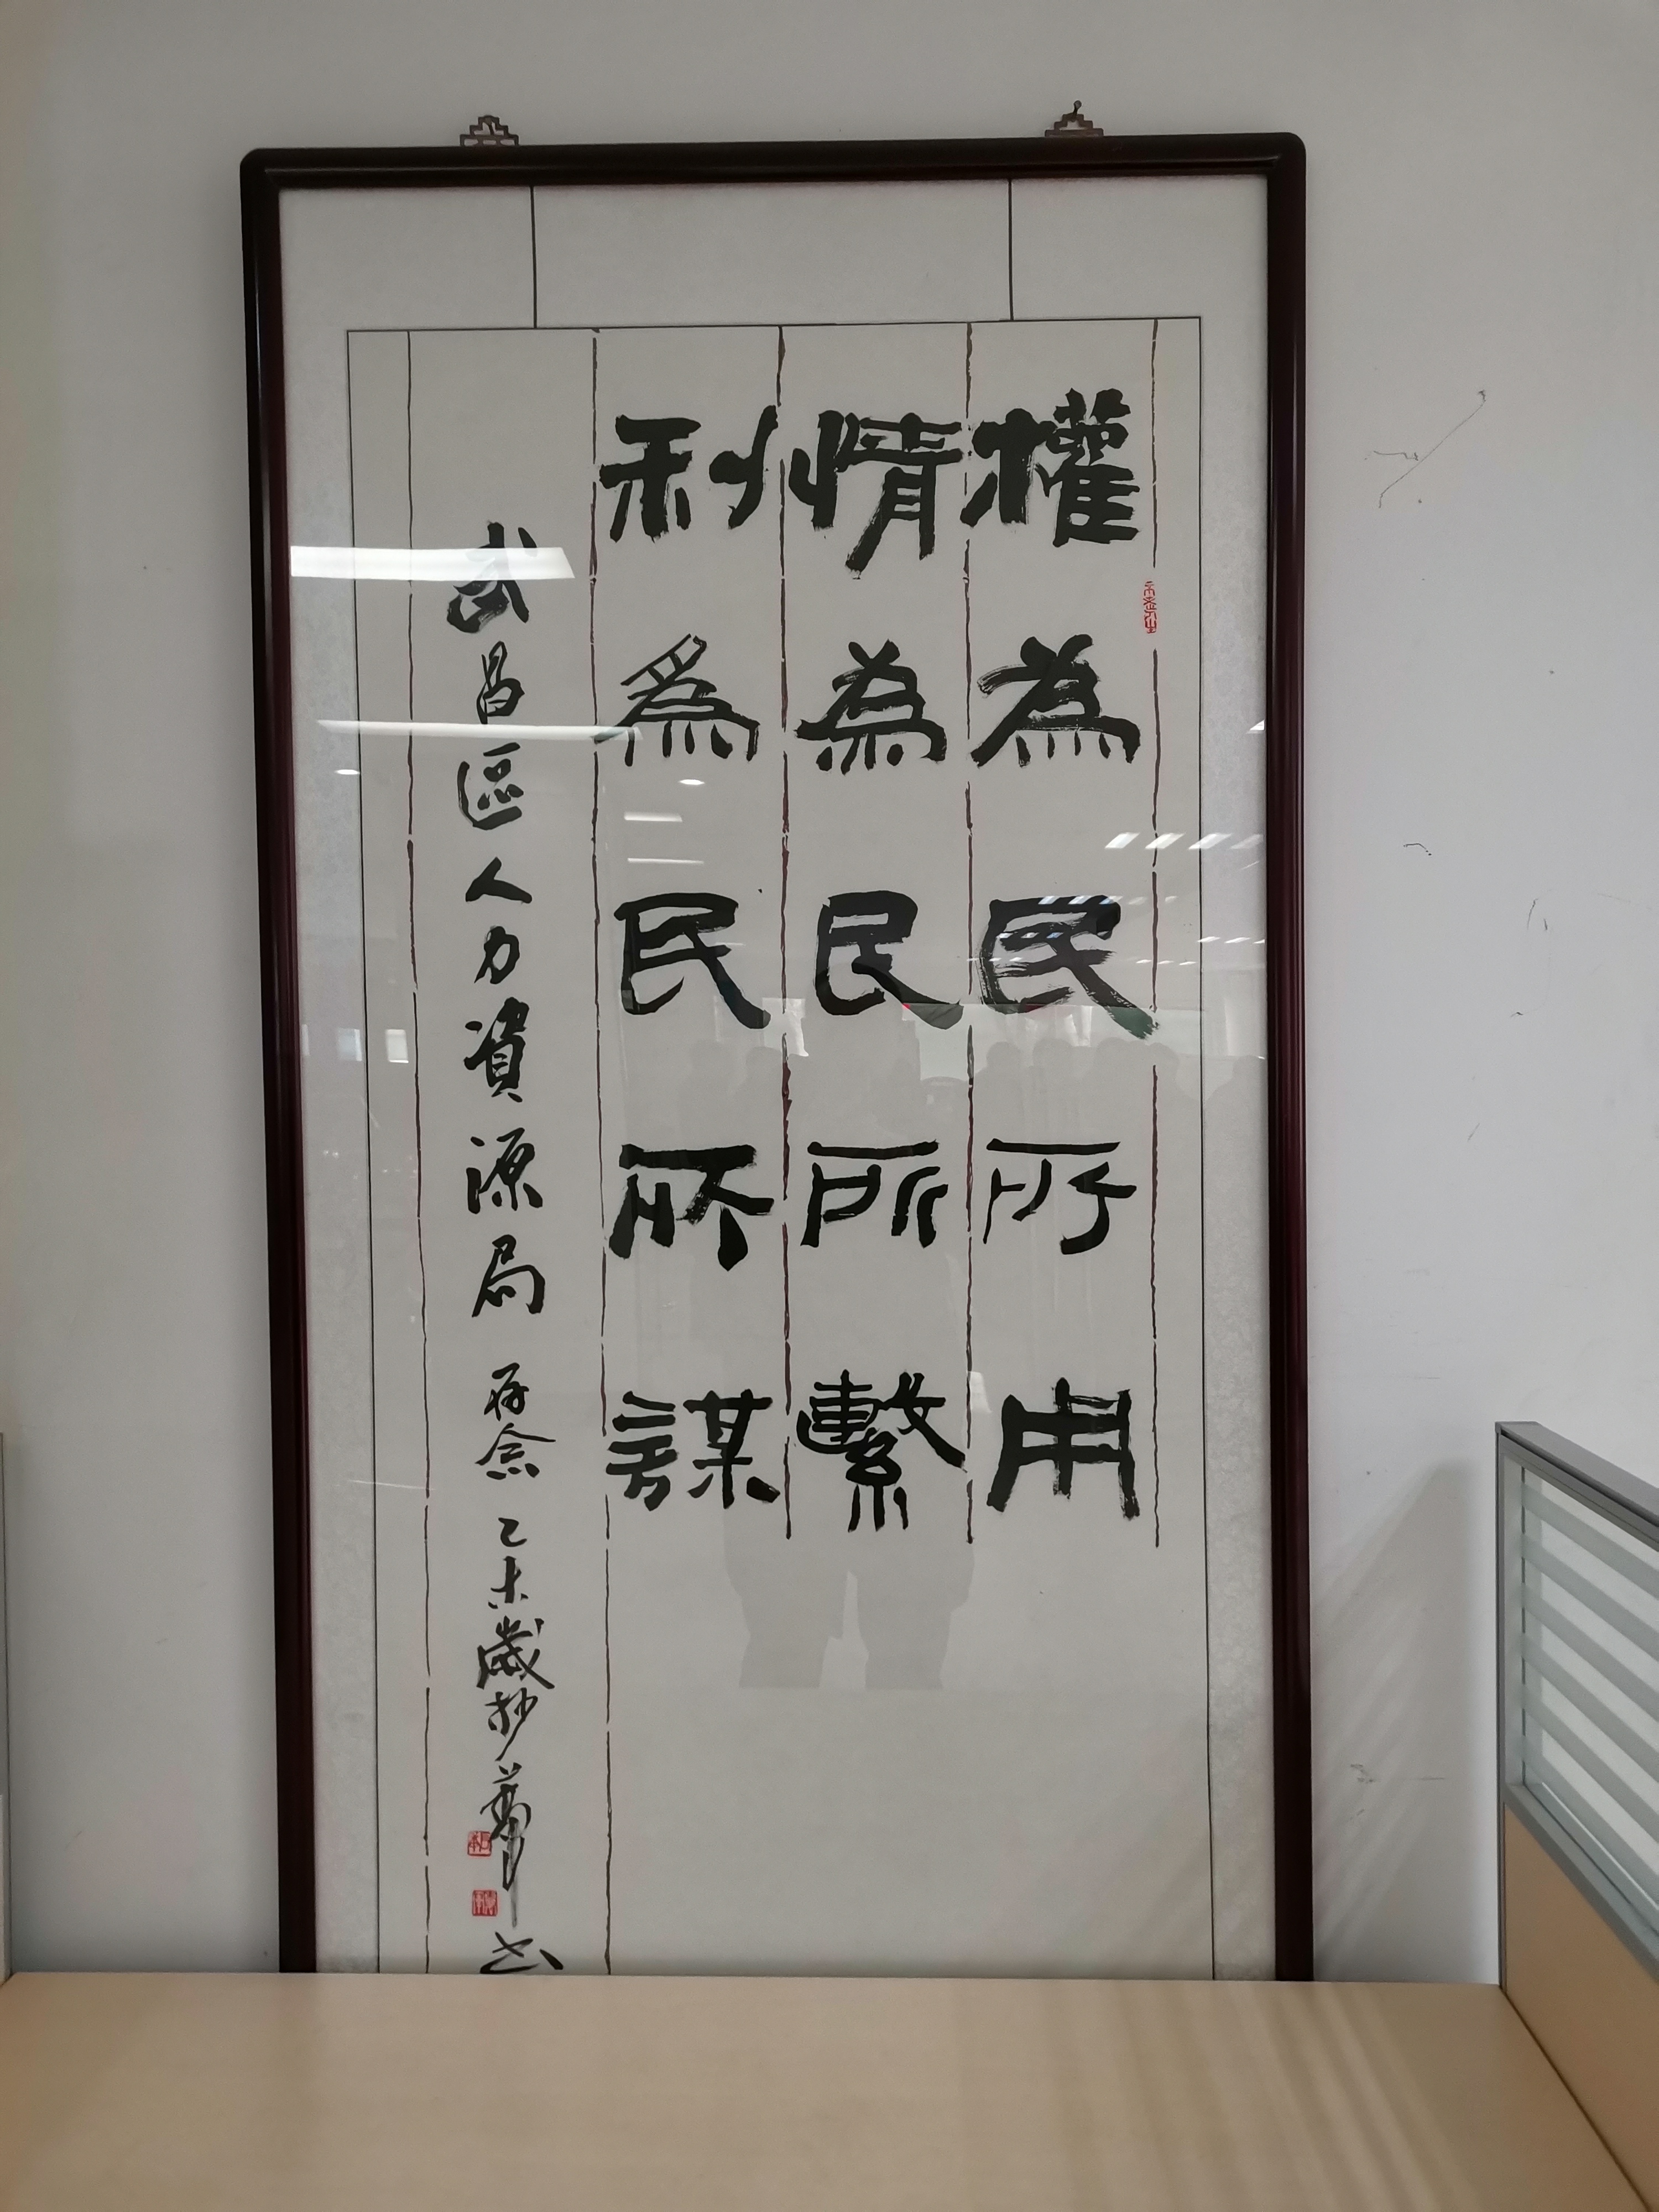 權為民所用
情為民所繫
利爲民所謀
武昌區人力資源局存念 乙未歲杪
书